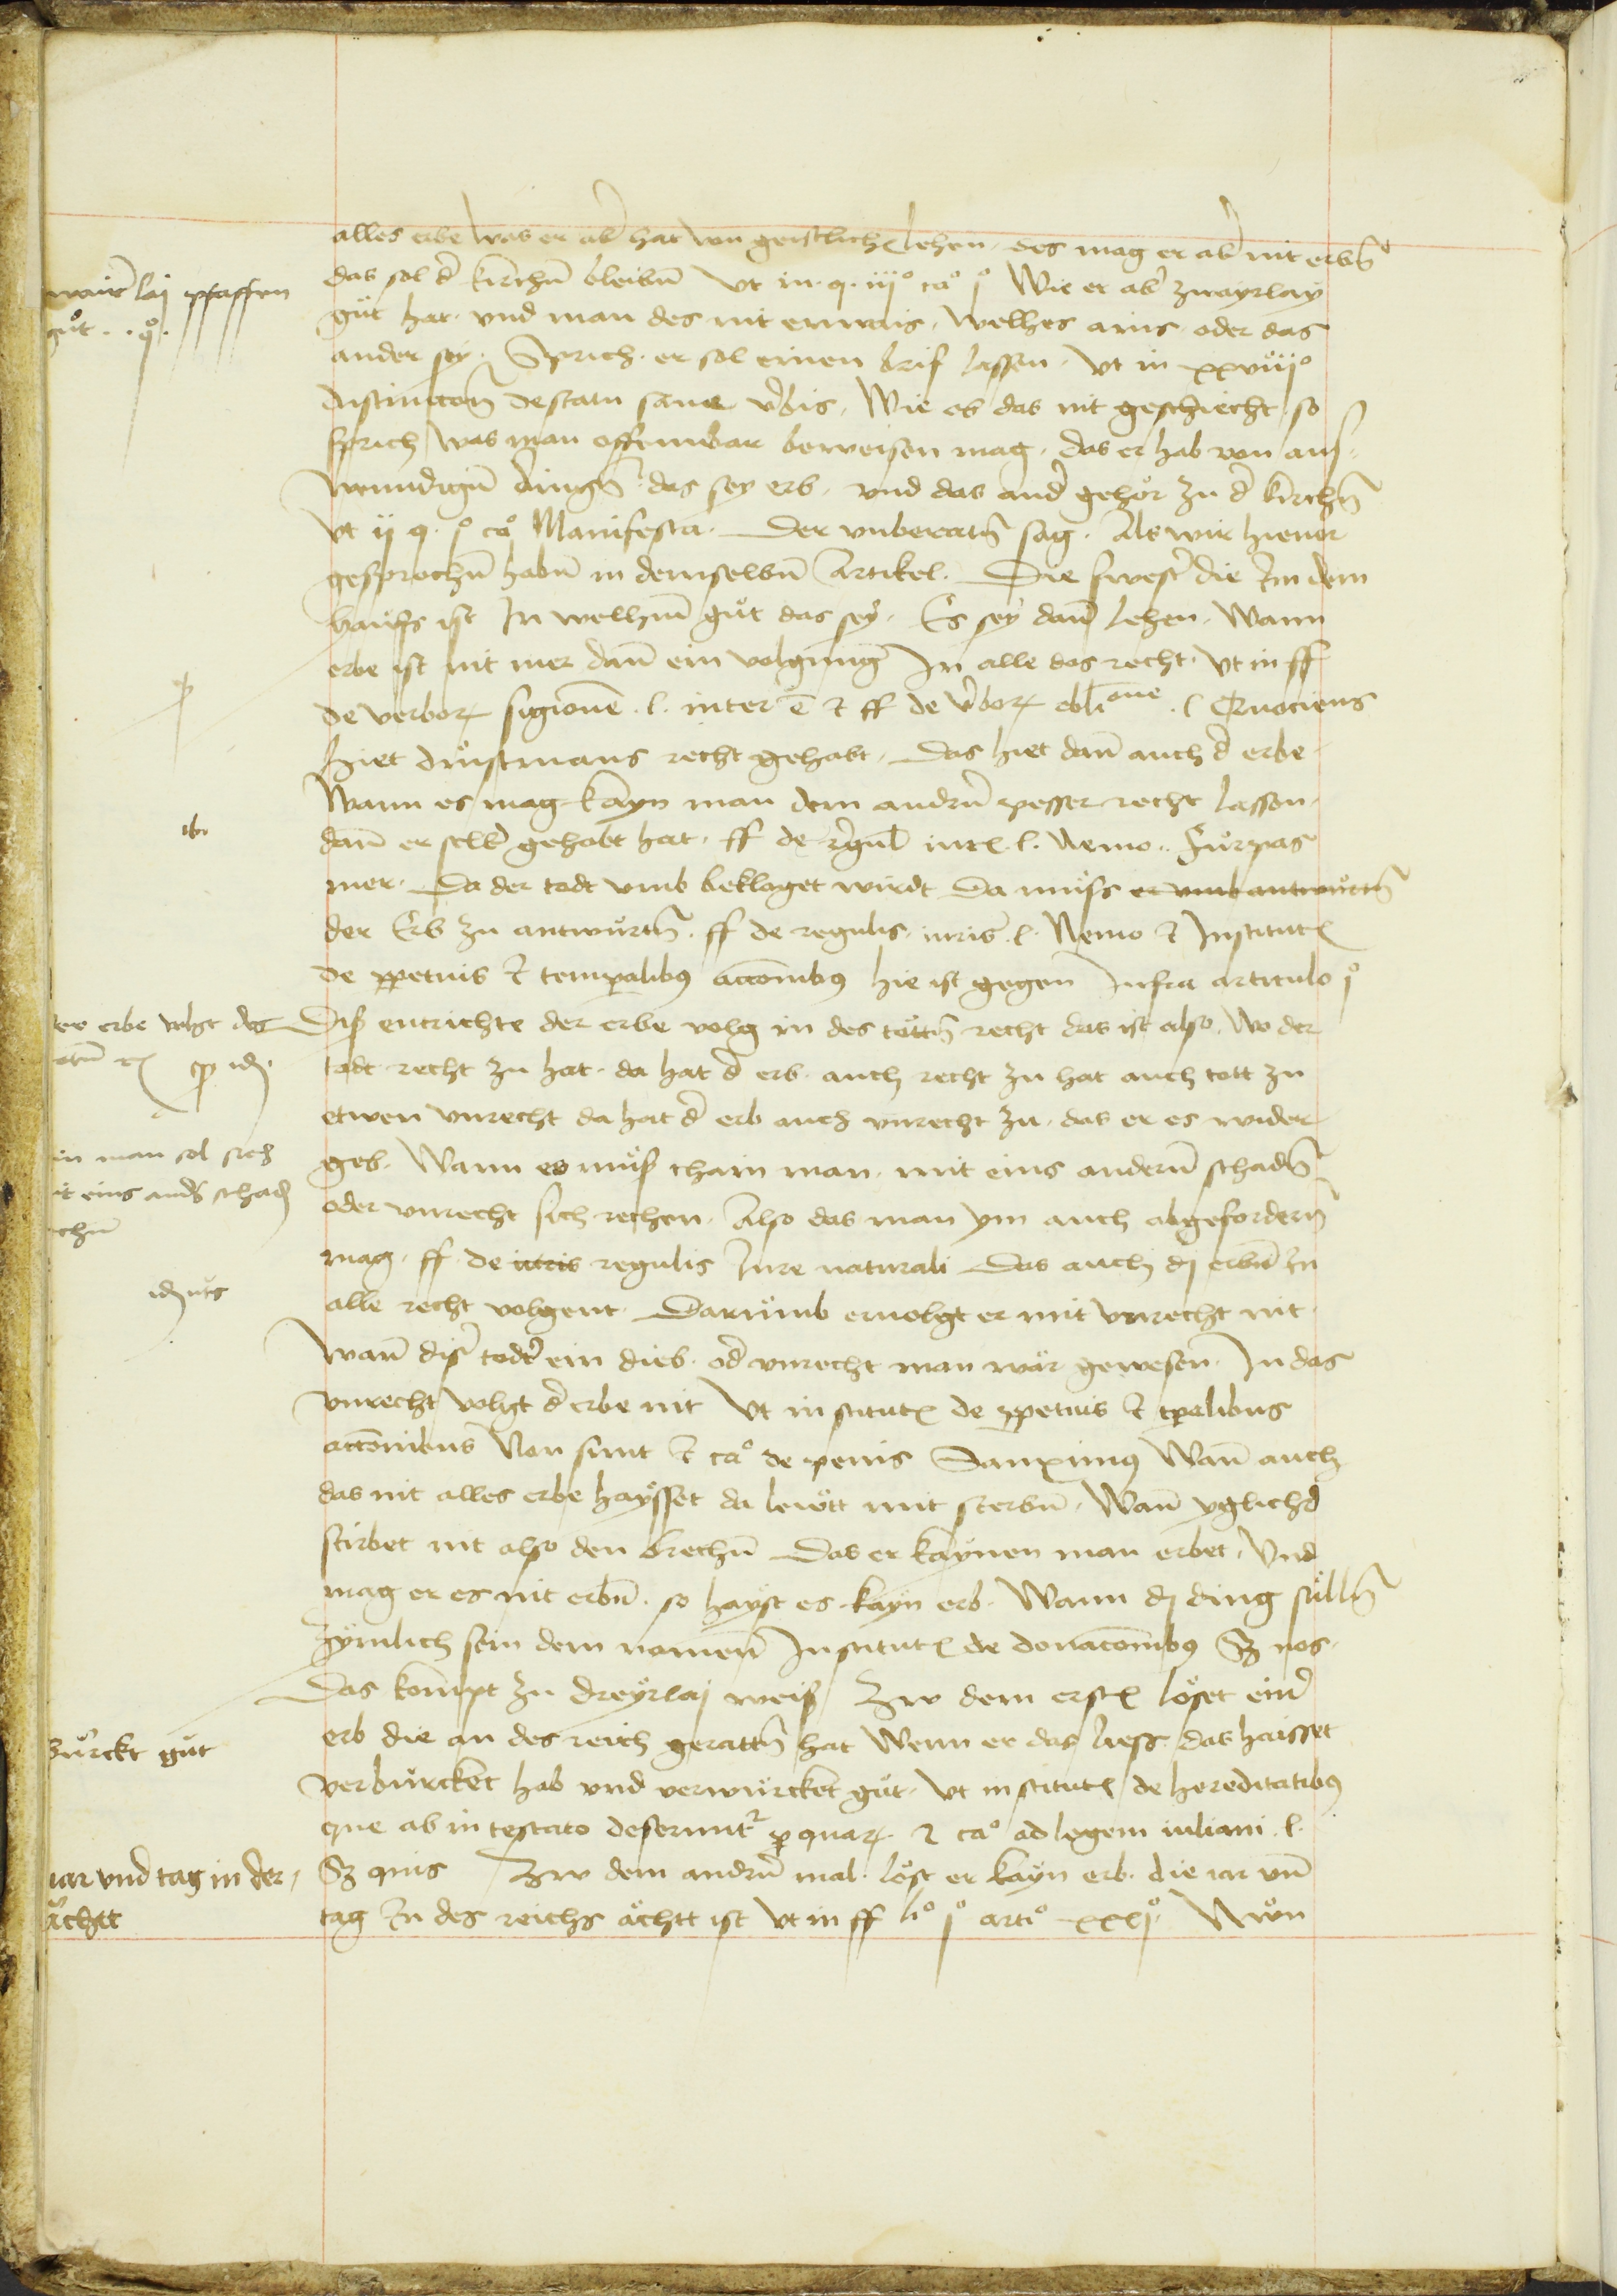 alles erbe was er ab̉ hat von geistlichꝫ lehen · des mag er ab̉ nit erbn̄
das sol d̉ kirchn̄ bleibn̄ Vt in · q · iiijº caº jº Wie er ab̉ zwayrlay
gůt hat · vnd man des nit enwais · welhes ains · oder das
ander sey · Sprich · er sol einen brif lassen · Vt in xxviijº
distinccōn̄ de statu sane v̉bis · Wie ob das nit geschiecht so
sprich was man offenwar beweisen mag · das er hab von aus
wenndign̄ dingn̄ · das sey erb · vnd das and̉ gehör zu d̉ kirchn̄
Vt ij q · jº caº Manifesta · Der vnberatn̄ sag · Als wir hieuor
gesprochn̄ habn̄ in demselbn̄ Artikel · Die swest̉ die Jn dem
haufs ist Jn welhem gůt das sey · Es sey dan̄ lehen · Wann
erbe ist nit mer dan̄ ein volgūng Jn alle das recht · Vt in ff
de verborꝝ sigīone · l · inter ē ⁊ ff de v̉borꝝ obliōne · l Quociens
hiet dinstmans recht gehabt · Das hiet dan̄ auch d̉ erbe ·
Wann es mag kayn man dem andrn̄ pesser recht lassen ·
dan̄ er selb̉ gehabt hat · ff de r̉gul̄ iurꝫ · l · Nemo · Fürpas
mer · Da der todt vmb beklaget wirdt Da muͤss er vmb antwurtn̄
der Erb zu antwürtn̄ · ff de regulis · iuris · l · Nemo ⁊ Institutꝫ
de ꝑpetuis ⁊ temꝑalibꝰ accōnibꝰ hie ist gegen Infra articulo jº
Dis entrichte der erbe volg in des tottn̄ recht das ist also · Wo der
todt recht zu hat · da hat d̉ erb · auch recht zu hat auch tott zu
etwen vnrecht da hat d̉ erb auch vnrecht zu · das er es wider
geb · Wann es muͤs chain man · mit eins andern̄ schadn̄
oder vnrecht sich rechen · Also das man ym auch abgefordern̄
mag · ff · de iuris regulis Jure naturali Das auch dj erbn̄ Jn
alle recht volgent · Darumb ernolgt er mit vnrecht nit ·
Wan̄ dis̉ todt̉ ein dieb · od̉ vnrecht man wär gewesen · In das
vnrecht volgt d̉ erbe nit Vt institutꝫ de ꝑpetuis ⁊ tꝑalibus
accōnibus Non sunt ⁊ caº de penis Sanximꝰ Wan̄ auch
das nit alles erbe haysset da leutt mit sterbn̄ · Wan̄ yglichd̉
stirbet nit also den brechn̄ Das er kaynen man erbet · Vnd
mag er es nit erbn̄ · so hayst es · kayn erb · Wann dj ding sulln̄
zymlich sein dem namen̄ Institutꝫ de donacōnibꝰ Sꝫ nos ·
Das kompt zu dreyrlaj weis Zw dem erstꝫ löset ein̉
erb die an des reich gerattn̄ hat Wenn er das liess · das haisset
verbürckent hab vnd verwürckent gůt · Vt institutꝫ de hereditatibꝰ
que ab intestato deferunt̉ ꝑ quarꝝ · ⁊ caº ad legem iuliani · l ·
Sꝫ quis Zw dem andrn̄ mal · löst er kayn erb · die iar vn̄
tag Jn des reichs ächtt ist Vt in ff liº jº artiº xxxjº · Nwn
wair̉laj pfaffen
gůt · · q̊ ·
ib ·
er erbe volgt des
in man sol sich
it eins and̉s schadꝫ
chn̄
zürckt gůt
iar vnd tag in der
ächtt